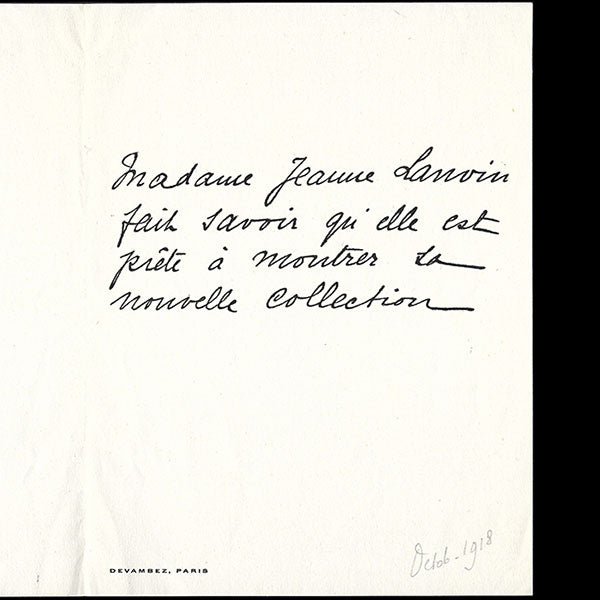 Madame Jeanne Lanvin
fait savoir qu'elle est
prête à montrer sa
nouvelle collection
DEVAMBEZ, PARIS
Octob - 1918